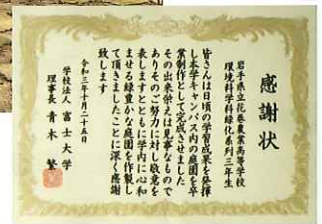 感謝状
岩手県立花巻農業高等学校
環境科学科緑化系列三年生
皆さんは日頃の学習成果を発揮
し本学キャンパス内の庭園を卒
業制作として完成させました
その出来栄は見事なもので
ありそのご努力に対し敬意を
表しますとともに学内に心和
ませる緑豊かな庭園を作製し
て頂きましたことに深く感謝
致します
令和三年十月二十五日
学校法人 富士大学
理事長 青木 繁